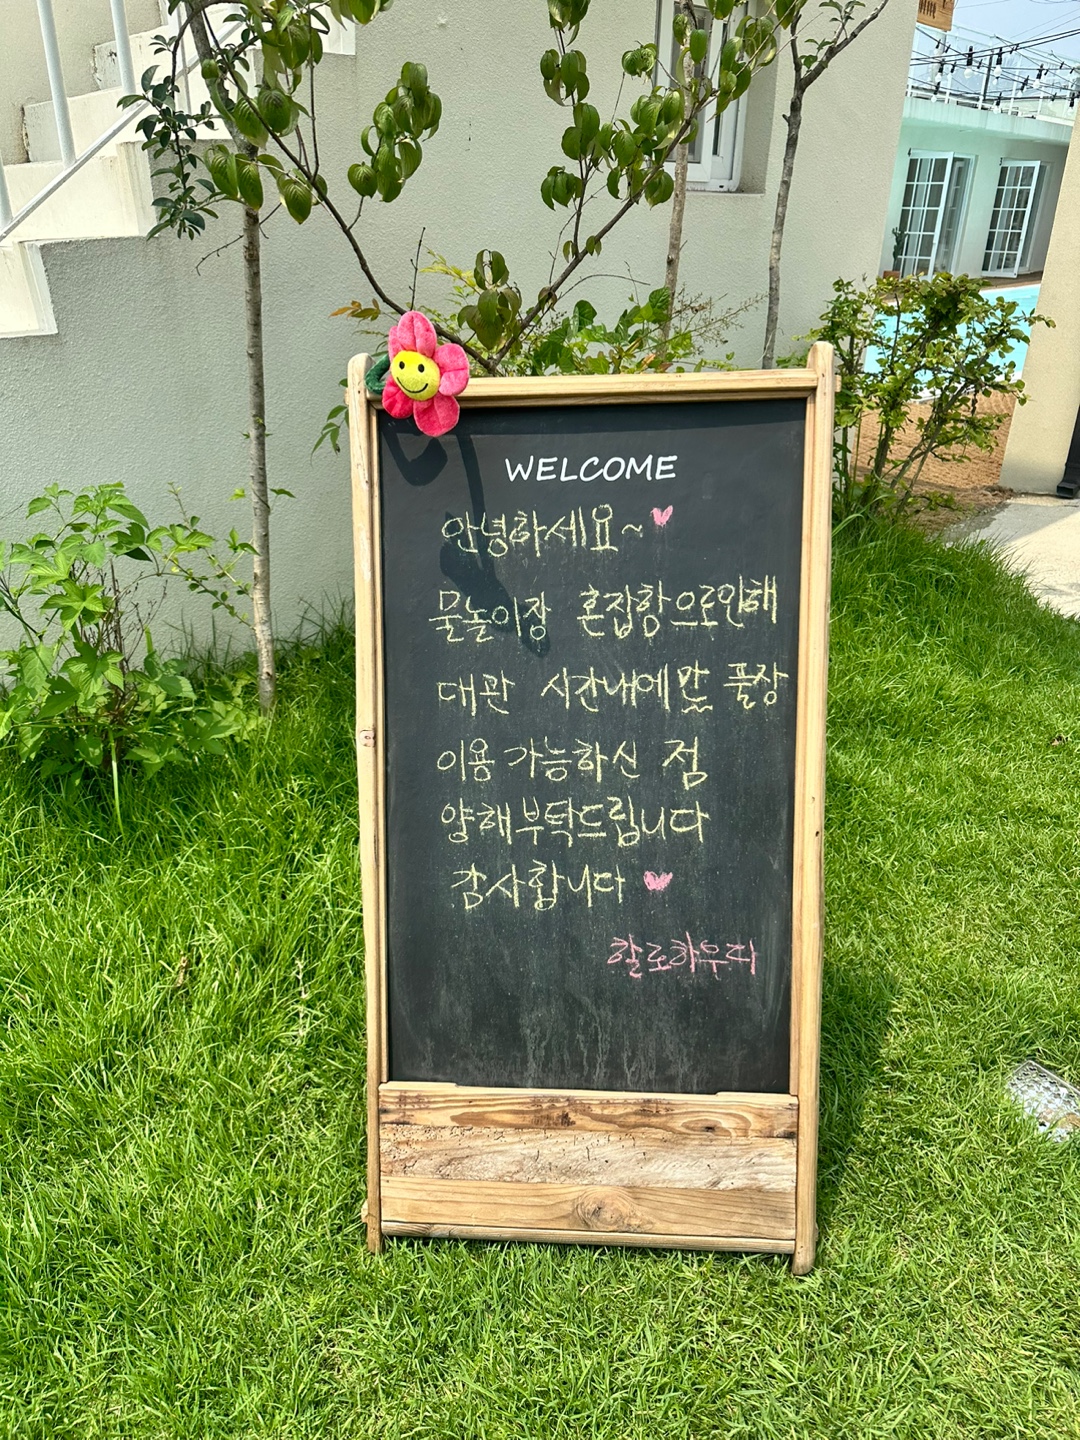 WELCOME
안녕하세요~♥
물놀이장 혼잡함으로인해
대관 시간내에만 풀장
이용 가능하신 점
양해부탁드립니다
감사합니다 ♥
할로하우라